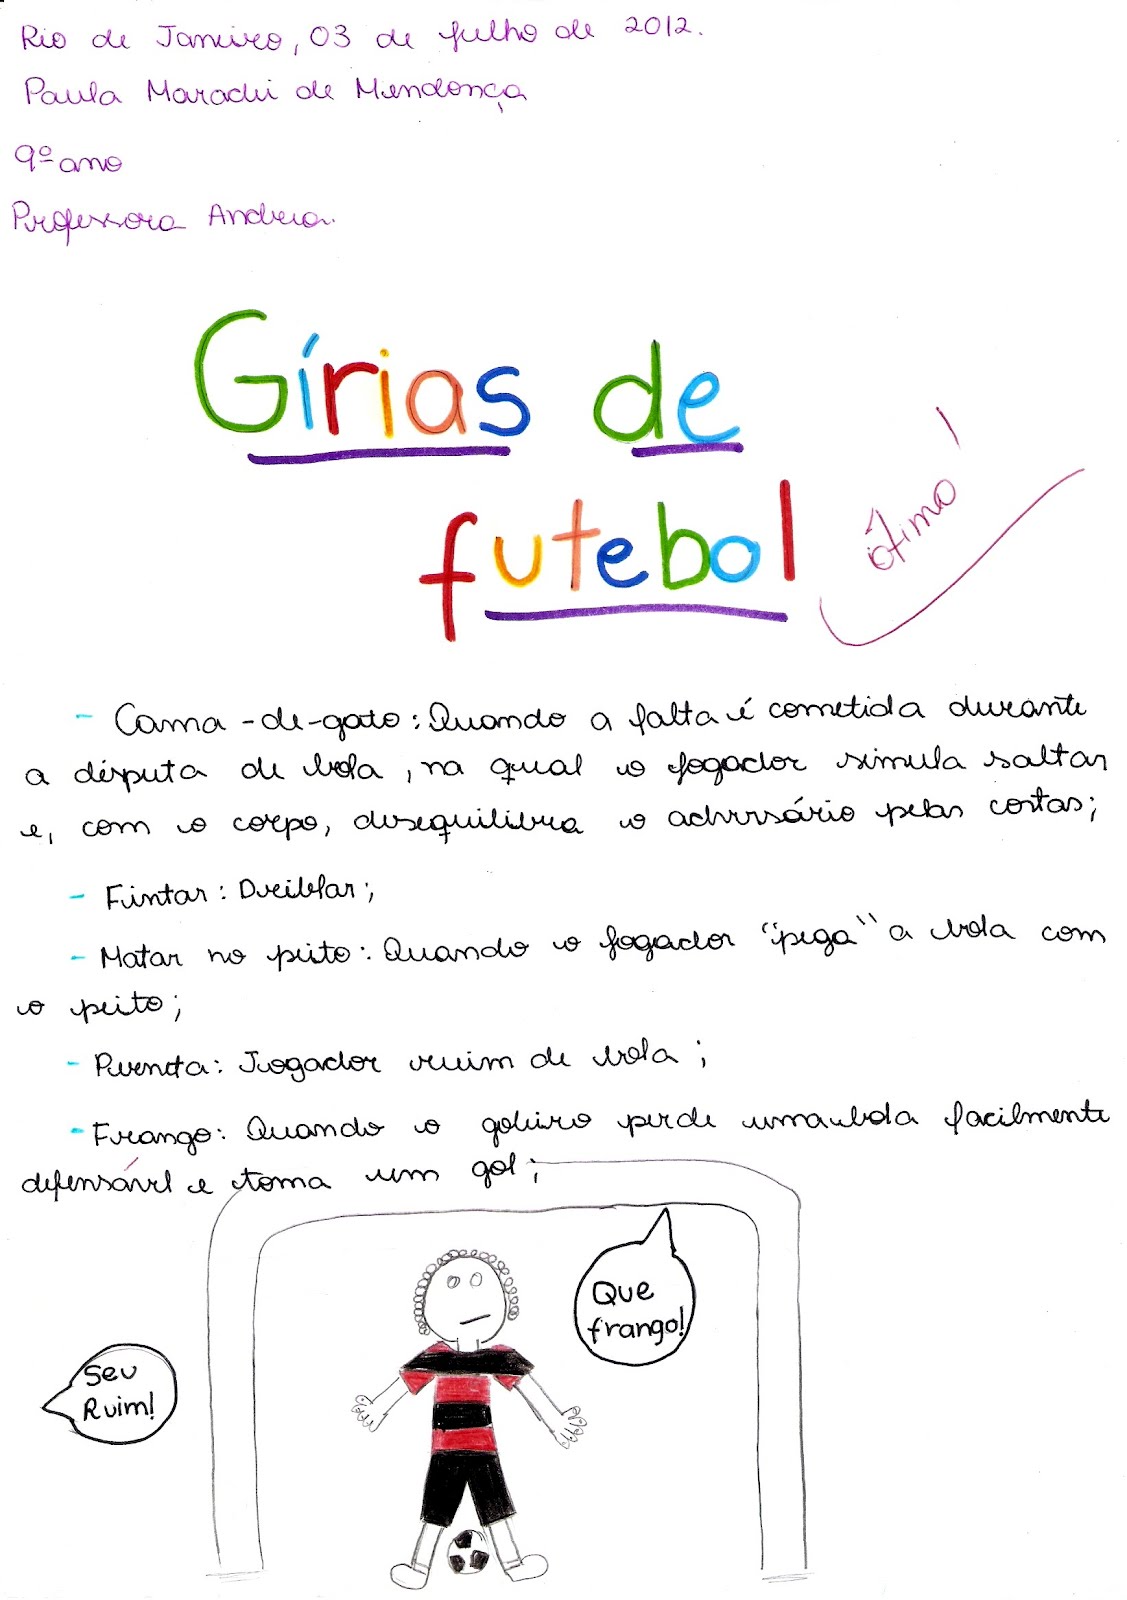 Rio de Janeiro, 03 de julho de 2012.
Paula Marachi de Mendonça
9º ano
Professora Andreia.
Gírias de
futebol
ótimo!
- Cama-de-gato: Quando a falta é cometida durante
a disputa de bola, na qual o jogador simula saltar
e, com o corpo, desequilibra o adversário pelas costas;
- Fintar: Dreiblar;
- Matar no peito: Quando o jogador "pega" a bola com
o peito;
- Perneta: Jogador ruim de bola;
- Frango: Quando o goleiro perde uma bola facilmente
defensável e toma um gol;
Que
frango!
Seu
Ruim!